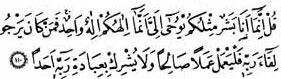 قُلْ إِنَّمَا أَنَا بَشَرٌ مِثْلُكُمْ يُوحَىٰ إِلَيَّ أَنَّمَا إِلَٰهُكُمْ إِلَٰهٌ وَاحِدٌ فَمَنْ كَانَ يَرْجُو
لِقَاءَ رَبِّهِ فَلْيَعْمَلْ عَمَلًا صَالِحًا وَلَا يُشْرِكْ بِعِبَادَةِ رَبِّهِ أَحَدًا ١١٠